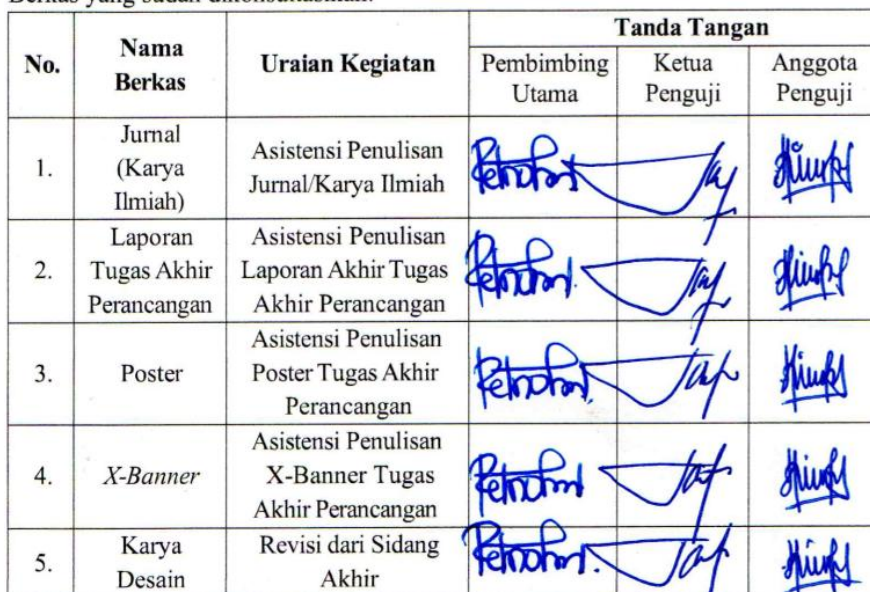 Berkas yang sudah dikonsultasikan:
Tanda Tangan
No.
Nama
Berkas
Uraian Kegiatan
Pembimbing
Utama
Ketua
Penguji
Anggota
Penguji
1.
Jurnal
(Karya
Ilmiah)
Asistensi Penulisan
Jurnal/Karya Ilmiah
2.
Laporan
Tugas Akhir
Perancangan
Asistensi Penulisan
Laporan Akhir Tugas
Akhir Perancangan
3.
Poster
Asistensi Penulisan
Poster Tugas Akhir
Perancangan
4.
X-Banner
Asistensi Penulisan
X-Banner Tugas
Akhir Perancangan
5.
Karya
Desain
Revisi dari Sidang
Akhir